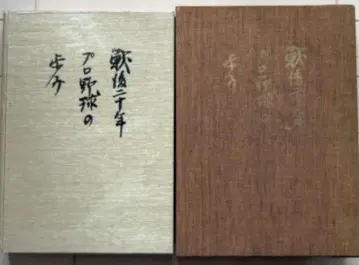 戦後二十年
プロ野球の
歩み
戦後二十年
プロ野球の
歩み